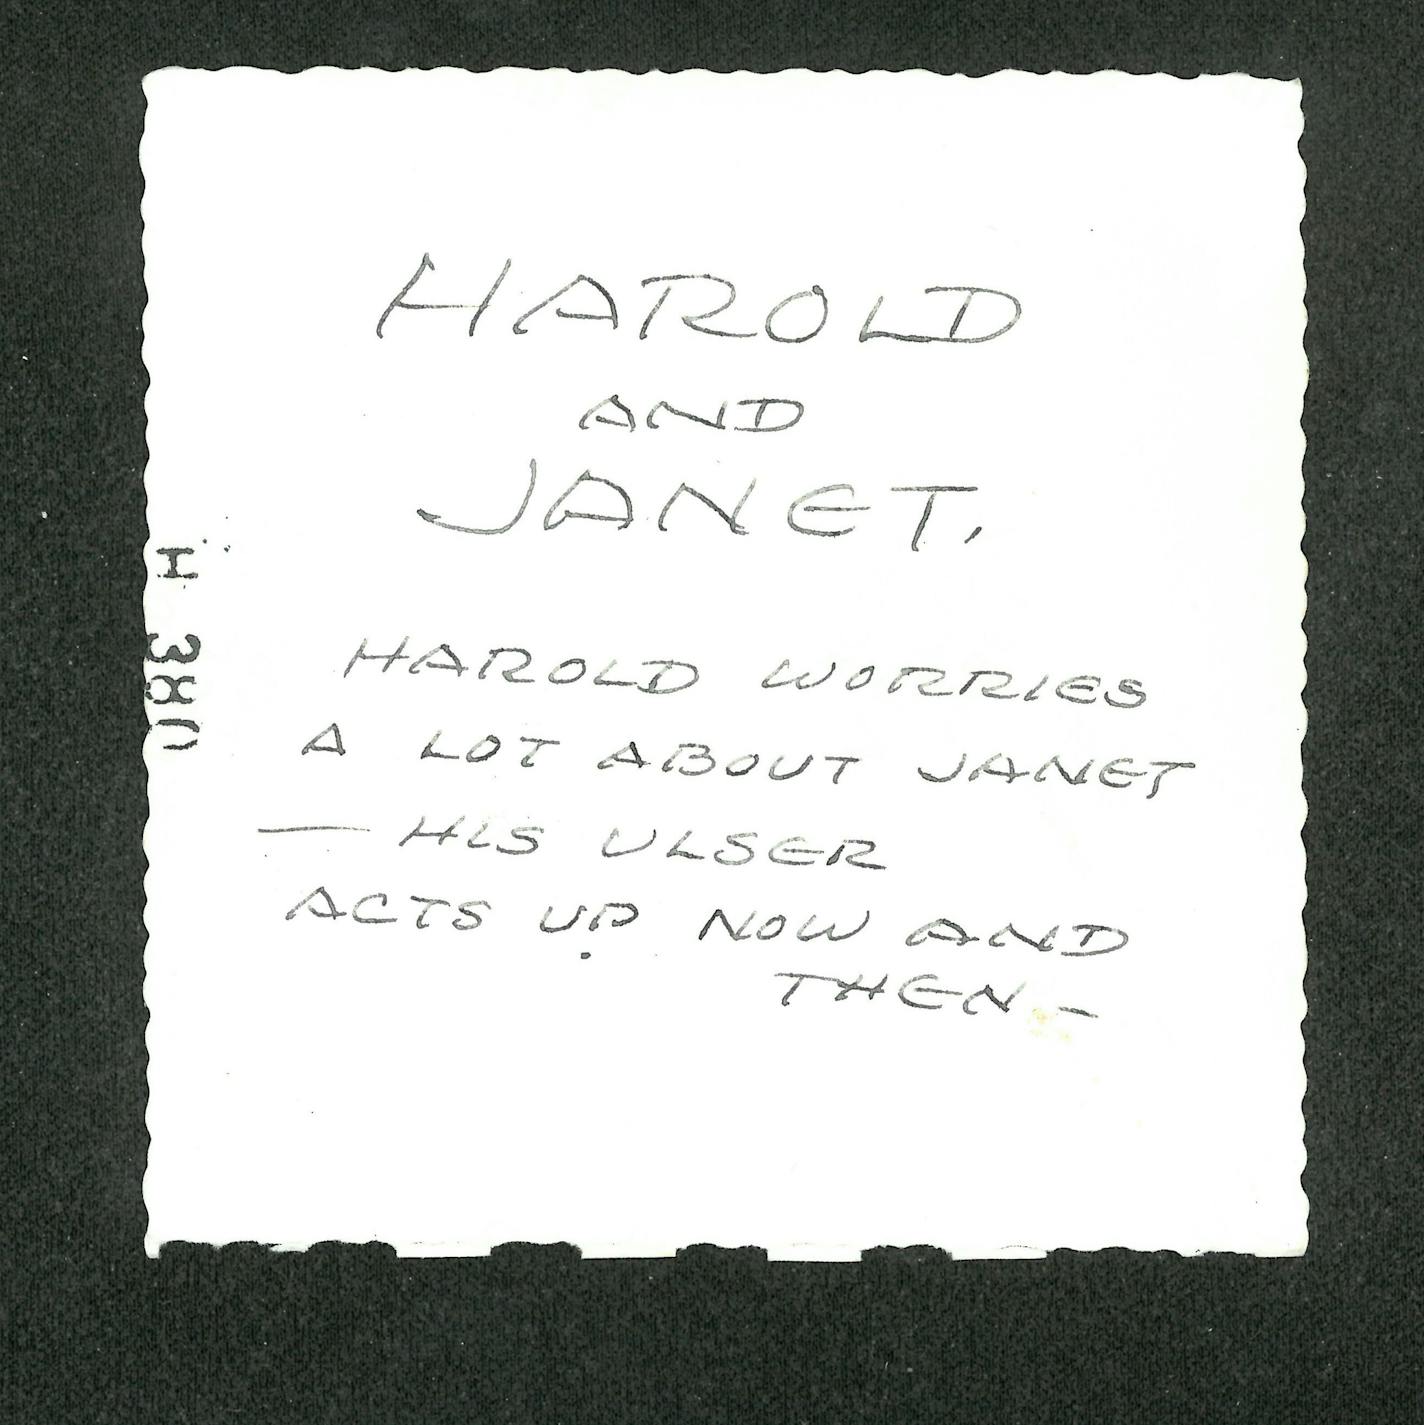 HAROLD
AND
JANET.
HAROLD WORRIES
A LOT ABOUT JANET
— HIS ULSER
ACTS UP NOW AND
THEN —
H 380